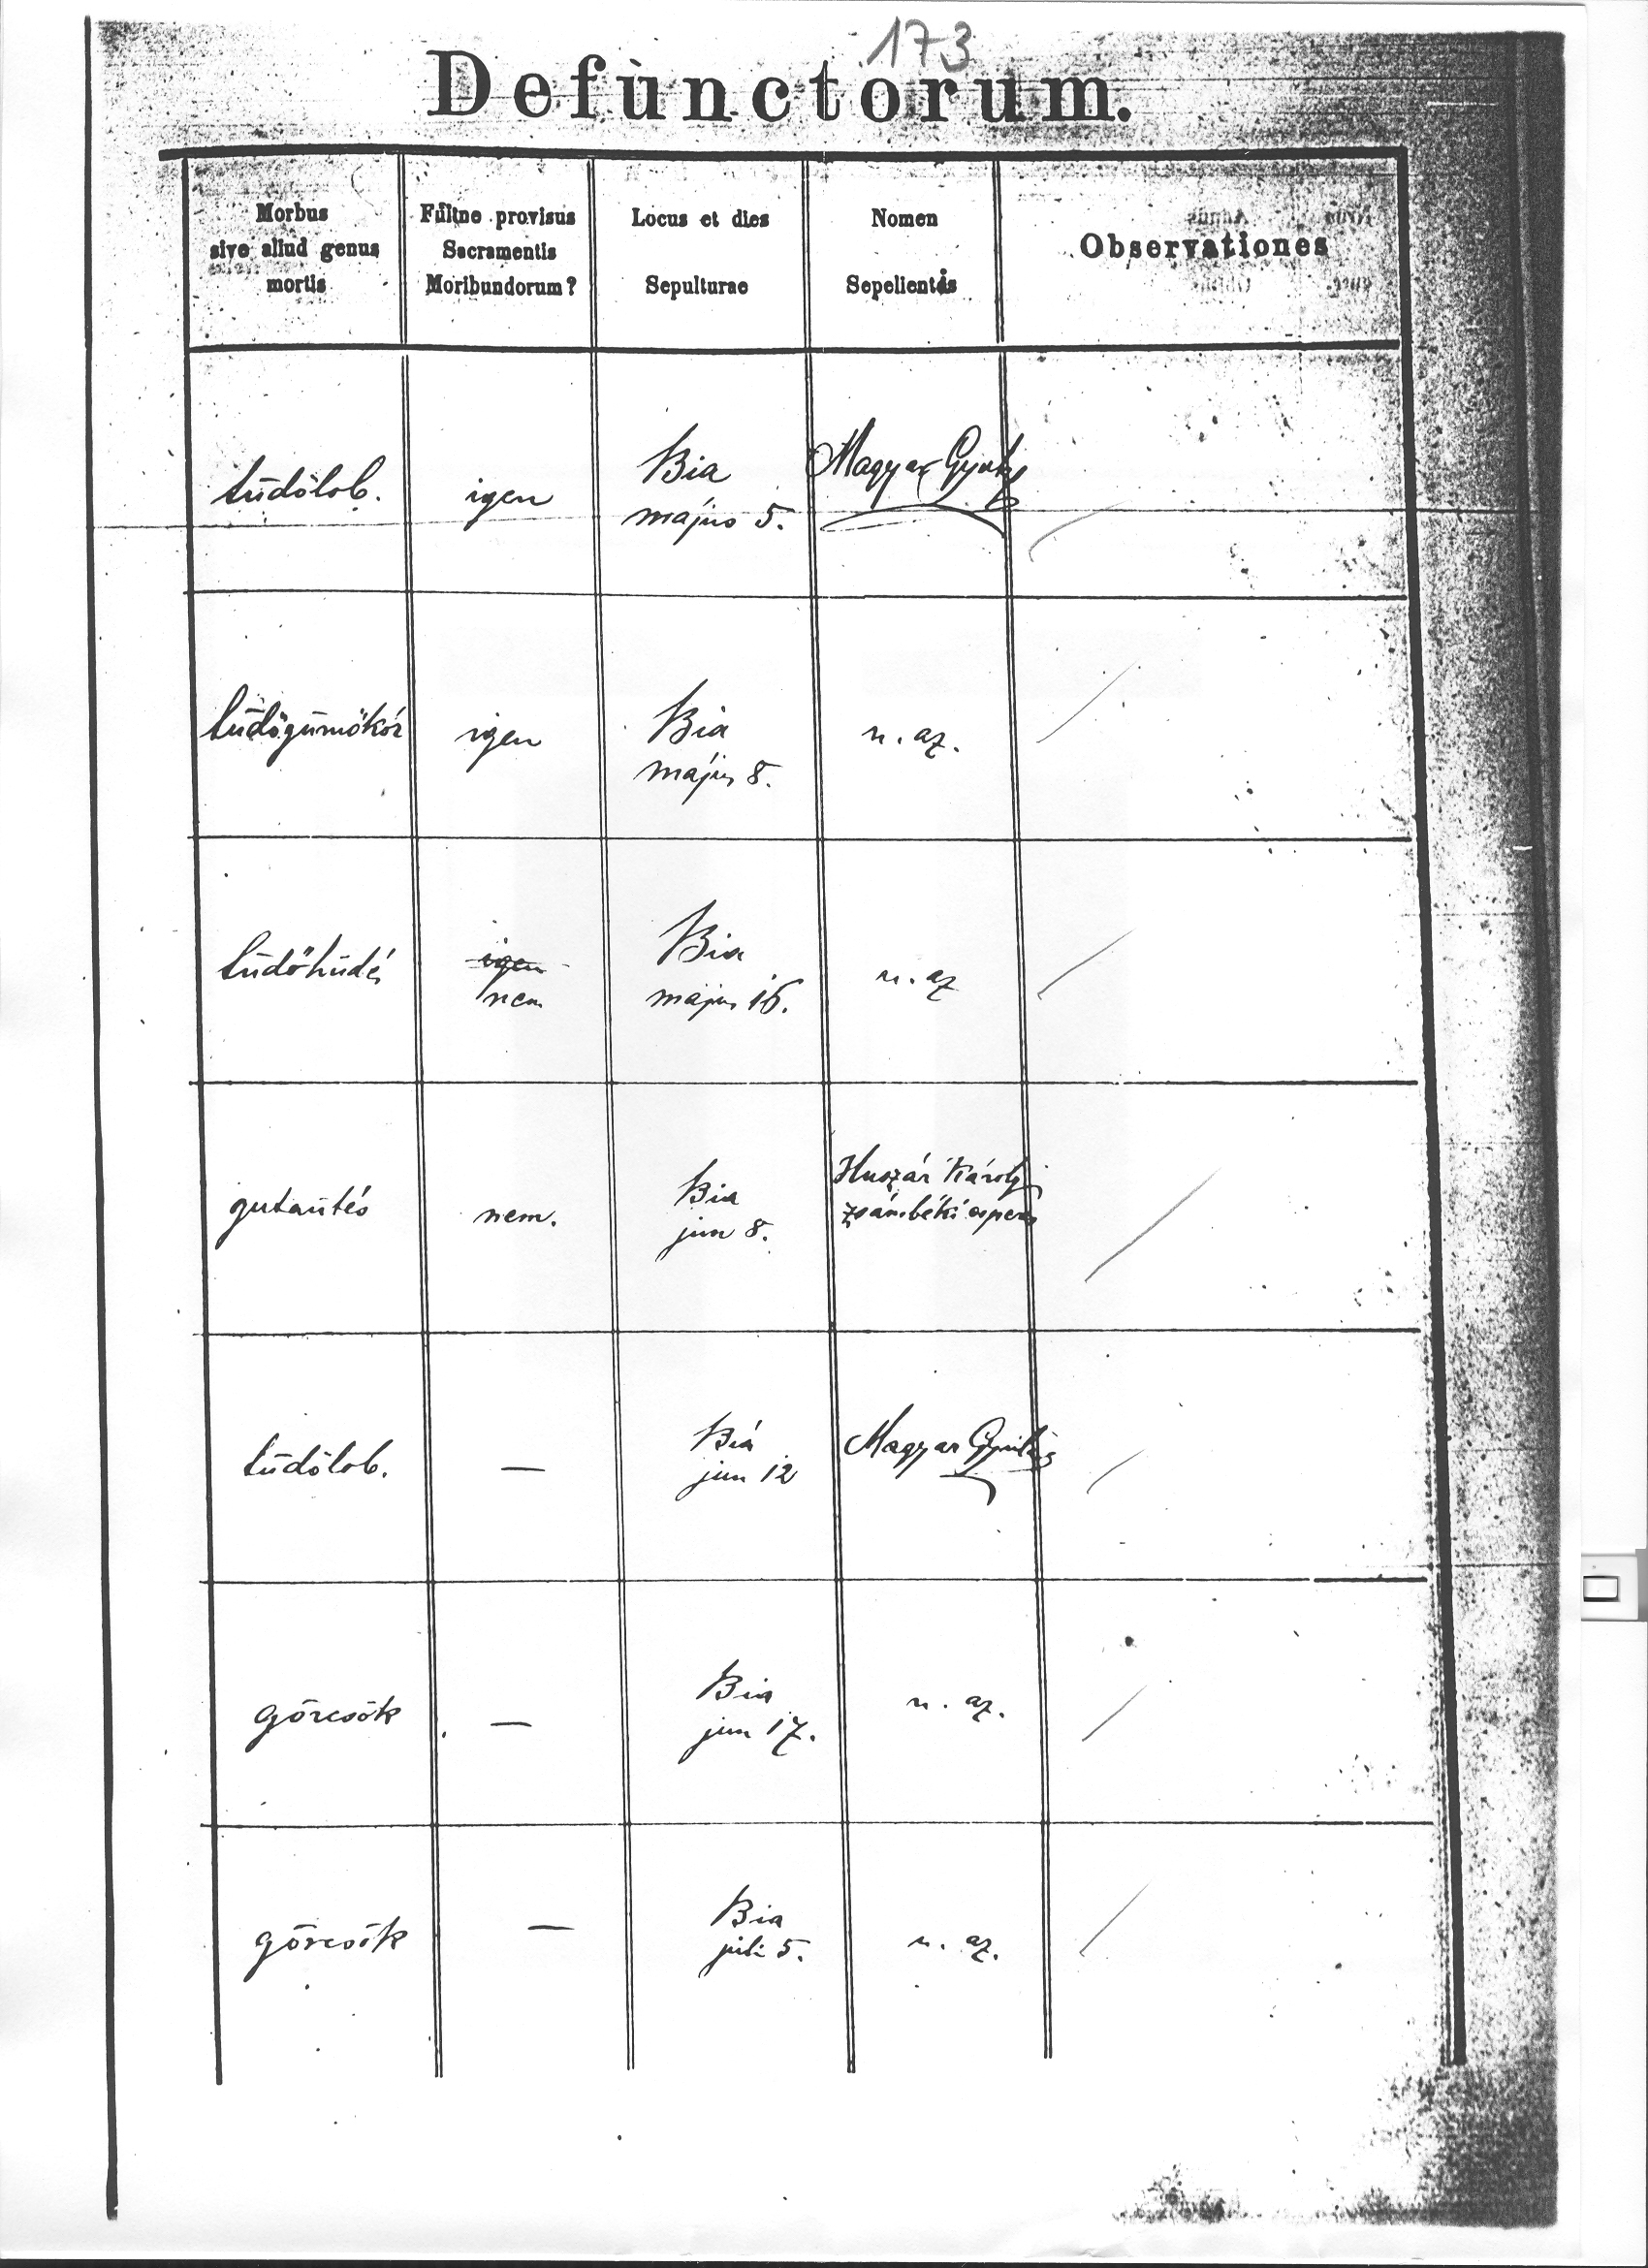 173
Defunctorum.
Morbus
sive aliud genus
mortis
Fuitne provisus
Sacramentis
Moribundorum?
Locus et dies
Sepulturae
Nomen
Sepelientis
Observationes
tüdőlob.
igen
Bia
május 5.
Magyar Gyula
tüdőgümőkór
igen
Bia
május 8.
u. az.
tüdőhüdés
igen
nem
Bia
május 16.
u. az
gutaütés
nem.
Bia
jun 8.
Huszár Károly
zsámbéki esperes
tüdőlob.
—
Bia
jun 12
Magyar Gyula
görcsök
—
Bia
jun 17.
u. az.
görcsök
—
Bia
juli 5.
u. az.